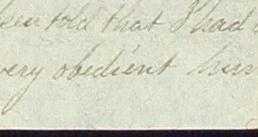 been told that I had
very obedient hum